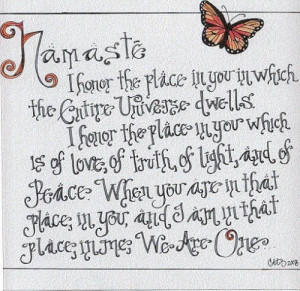 Namasté
I honor the place in you in which
the Entire Universe dwells.
I honor the place in you which
is of love, of truth, of light, and of
Peace. When you are in that
place, in you, and I am in that
place, in me, We Are One...